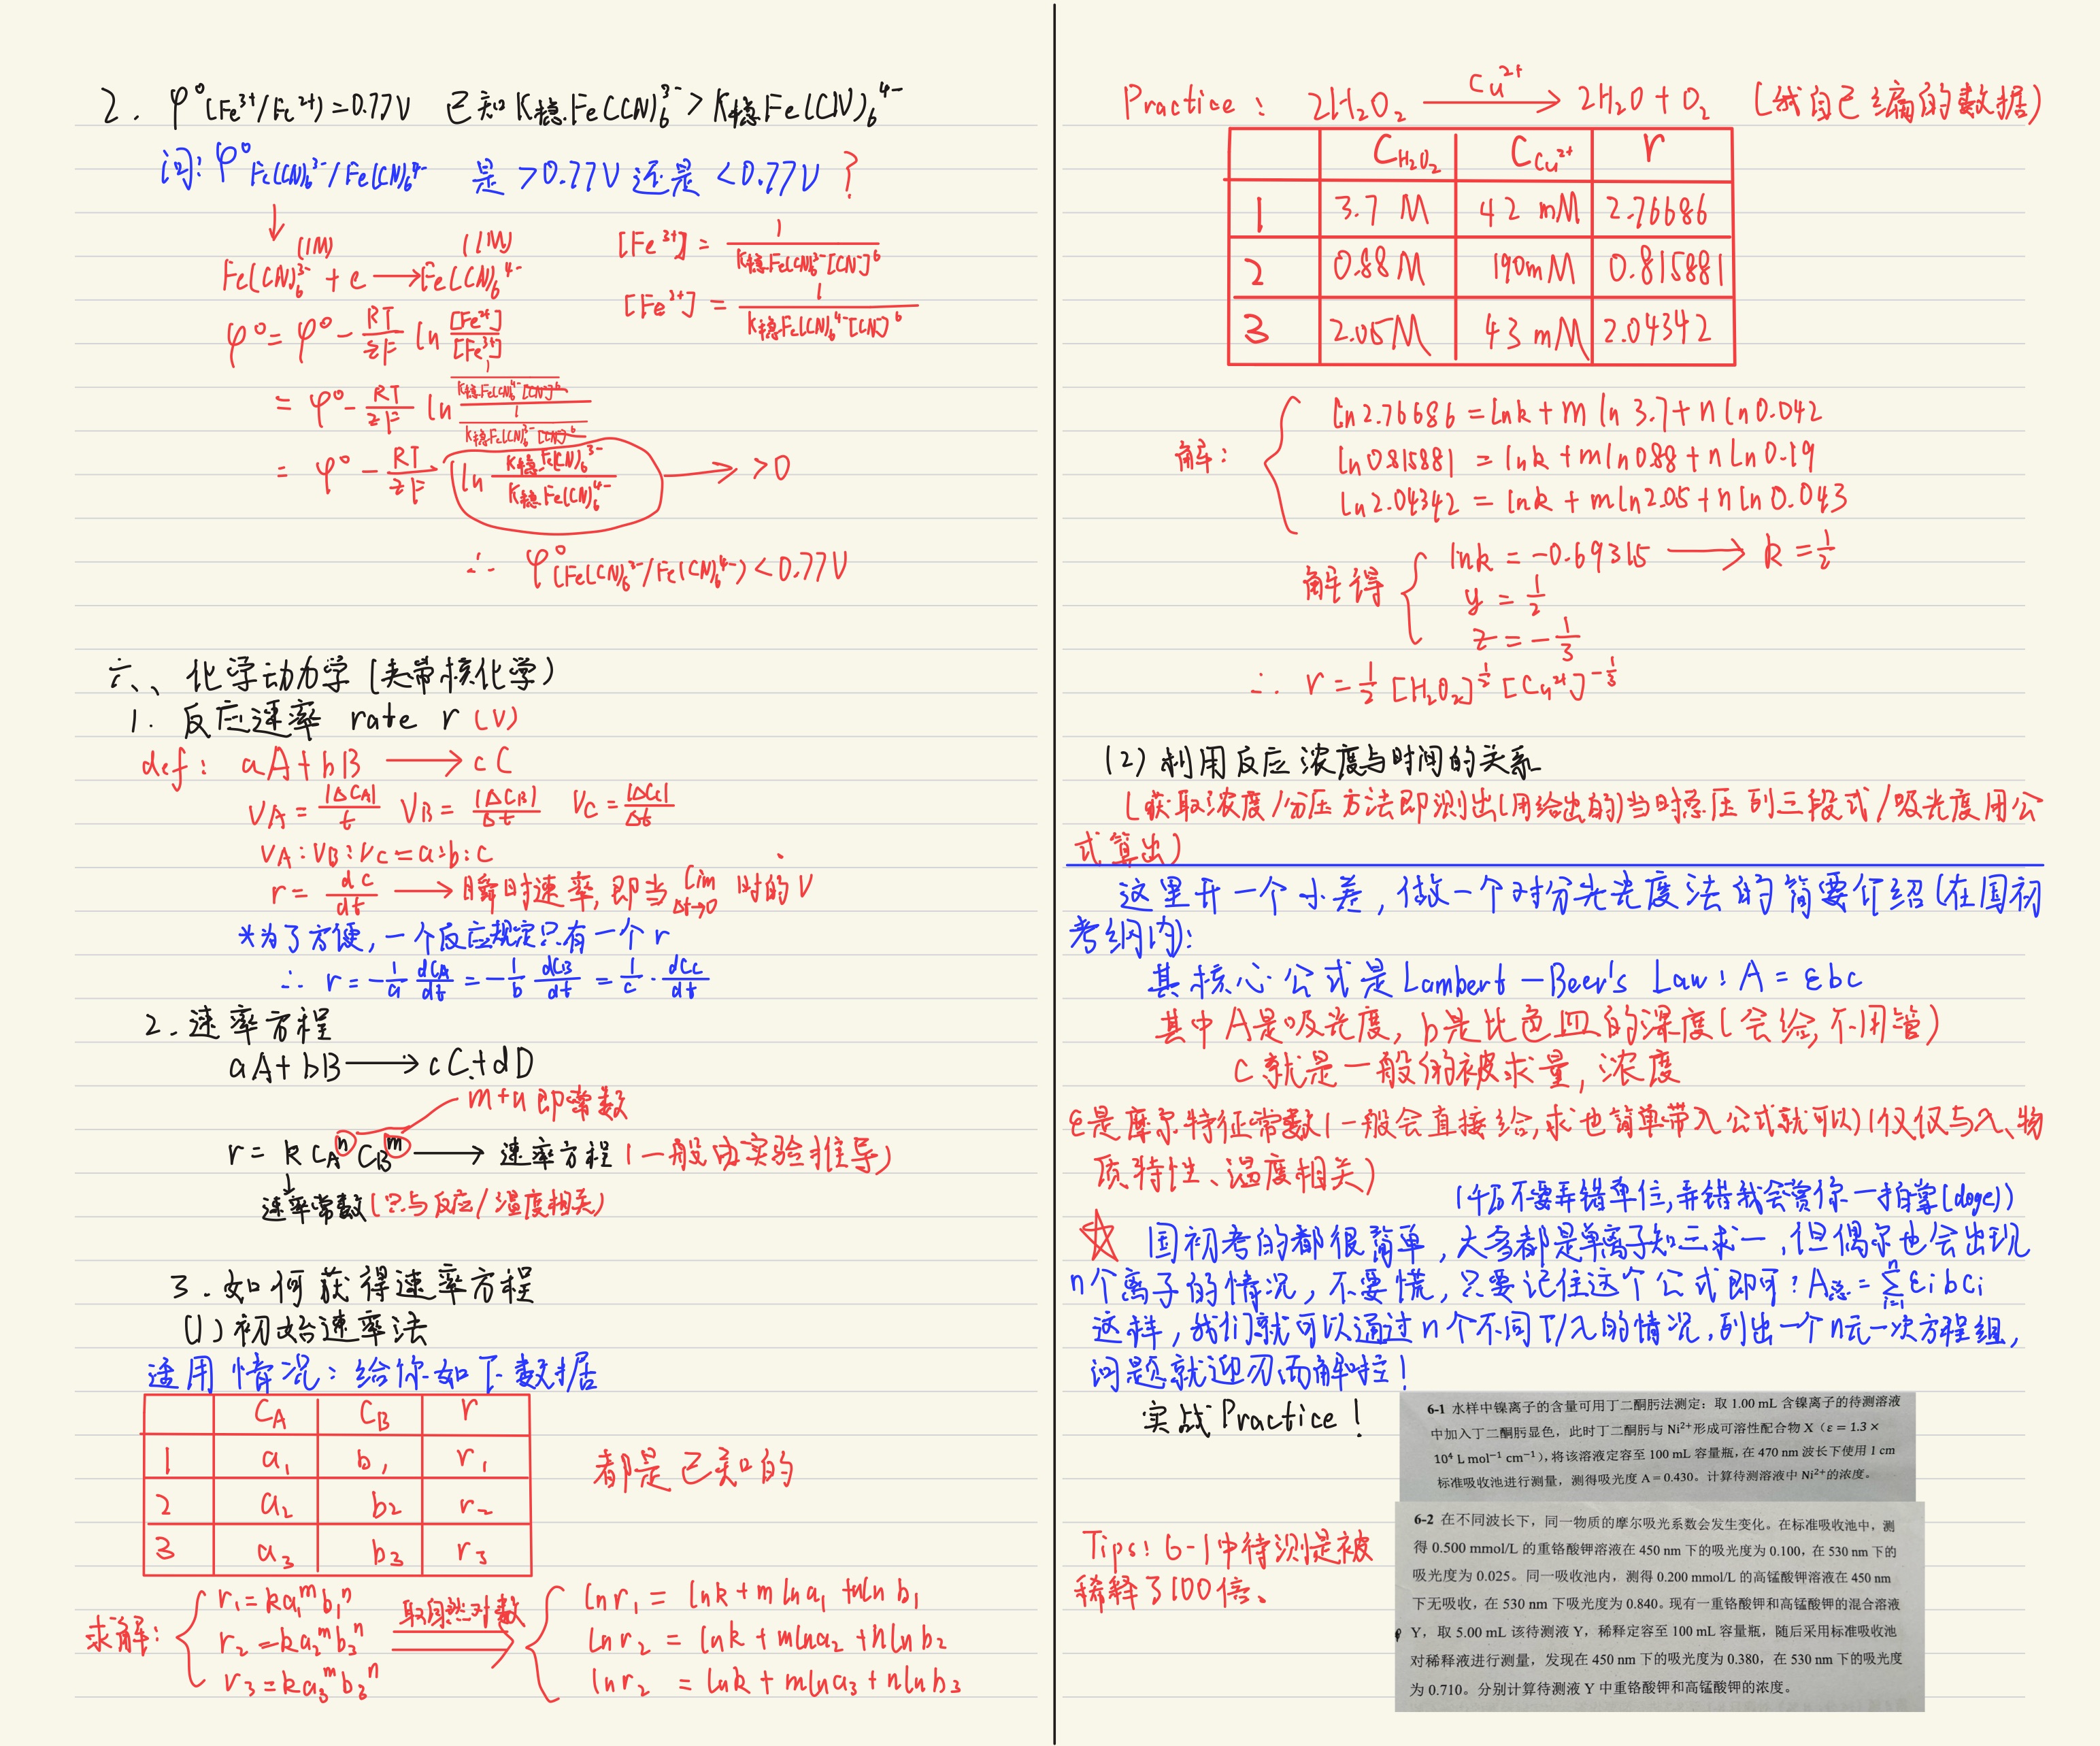 2. φ°(Fe³⁺/Fe²⁺)=0.77V 已知K稳.Fe(CN)₆³⁻>K稳Fe(CN)₆⁴⁻
问: φ°Fe(CN)₆³⁻/Fe(CN)₆⁴⁻ 是>0.77V还是<0.77V?
↓ (1M) (1M)
Fe(CN)₆³⁻+e→Fe(CN)₆⁴⁻
[Fe³⁺]=1/(K稳Fe(CN)₆³⁻[CN⁻]⁶)
[Fe²⁺]=1/(K稳Fe(CN)₆⁴⁻[CN⁻]⁶)
φ°=φ°-RT/zF ln [Fe²⁺]/[Fe³⁺]
=φ°-RT/zF ln (1/(K稳Fe(CN)₆⁴⁻[CN]⁶))/(1/(K稳Fe(CN)₆³⁻[CN]⁶))
=φ°-RT/zF ln K稳Fe(CN)₆³⁻/K稳Fe(CN)₆⁴⁻ → >0
∴ φ°(Fe(CN)₆³⁻/Fe(CN)₆⁴⁻)<0.77V
六、化学动力学(夹带核化学)
1. 反应速率 rate r (v)
def: aA+bB→cC
VA=|ΔCA|/t VB=|ΔCB|/Δt VC=|ΔCc|/Δt
VA:VB:VC=a:b:c
r=dc/dt→瞬时速率,即当lim Δt→0 时的V
*为了方便,一个反应规定只有一个r
∴ r=-1/a dCA/dt=-1/b dCB/dt=1/c·dCc/dt
2.速率方程
aA+bB→cC+dD
m+n即常数
r=kCAⁿCBᵐ→速率方程(一般由实验推导)
↓
速率常数(只与反应/温度相关)
3.如何获得速率方程
(1)初始速率法
适用情况:给你如下数据
CA CB r
1 a₁ b₁ r₁
2 a₂ b₂ r₂
3 a₃ b₃ r₃
都是已知的
求解:
r₁=ka₁ᵐb₁ⁿ
r₂=ka₂ᵐb₂ⁿ
r₃=ka₃ᵐb₃ⁿ
取自然对数
lnr₁=lnk+mlna₁+nlnb₁
lnr₂=lnk+mlna₂+nlnb₂
lnr₂=lnk+mlna₃+nlnb₃
Practice: 2H₂O₂ →(Cu²⁺) 2H₂O+O₂ (我自己编的数据)
CH₂O₂ CCu²⁺ r
1 3.7 M 42 mM 2.76686
2 0.88M 190mM 0.815881
3 2.05M 43 mM 2.04342
解:
ln2.76686=lnk+mln3.7+nln0.042
ln0.815881=lnk+mln0.88+nln0.19
ln2.04342=lnk+mln2.05+nln0.043
解得
lnk=-0.69315→k=1/2
y=1/2
z=-1/3
∴ r=1/2[H₂O₂]^(1/2)[Cu²⁺]^(-1/3)
(2)利用反应浓度与时间的关系
(获取浓度/分压方法即测出(用给出的)当时总压列三段式/吸光度用公
式算出)
这里开一个小差,做一个对分光光度法的简要介绍(在国初
考纲内):
其核心公式是Lambert-Beer's Law: A=εbc
其中A是吸光度,b是比色皿的深度(会给,不用管)
c就是一般的被求量,浓度
ε是摩尔特征常数(一般会直接给,求也简单带入公式就可以)(仅仅与λ、物
质特性、温度相关)
(千万不要弄错单位,弄错我会赏你一拍掌(doge))
☆ 国初考的都很简单,大多都是单离子知三求一,但偶尔也会出现
n个离子的情况,不要慌,只要记住这个公式即可:A总=Σⁿᵢ₌₁εᵢbcᵢ
这样,我们就可以通过n个不同T/λ的情况,列出一个n元一次方程组,
问题就迎刃而解啦!
实战Practice!
6-1 水样中镍离子的含量可用丁二酮肟法测定:取 1.00 mL 含镍离子的待测溶液
中加入丁二酮肟显色,此时丁二酮肟与 Ni²⁺形成可溶性配合物 X(ε = 1.3 ×
10⁴ L mol⁻¹ cm⁻¹),将该溶液定容至 100 mL 容量瓶,在 470 nm 波长下使用 1 cm
标准吸收池进行测量,测得吸光度 A = 0.430。计算待测溶液中 Ni²⁺的浓度。
6-2 在不同波长下,同一物质的摩尔吸光系数会发生变化。在标准吸收池中,测
得 0.500 mmol/L 的重铬酸钾溶液在 450 nm 下的吸光度为 0.100,在 530 nm 下的
吸光度为 0.025。同一吸收池内,测得 0.200 mmol/L 的高锰酸钾溶液在 450 nm
下无吸收,在 530 nm 下吸光度为 0.840。现有一重铬酸钾和高锰酸钾的混合溶液
Y,取 5.00 mL 该待测液 Y,稀释定容至 100 mL 容量瓶,随后采用标准吸收池
对稀释液进行测量,发现在 450 nm 下的吸光度为 0.380,在 530 nm 下的吸光度
为 0.710。分别计算待测液 Y 中重铬酸钾和高锰酸钾的浓度。
Tips! 6-1中待测是被
稀释了100倍。